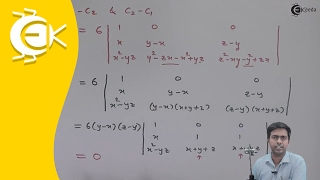 -C₂ & C₂-C₁
= 6 | 1 0 0 |
| x y-x z-y |
| x²-yz y²-zx-x²+yz z²-xy-y²+zx |
= 6 | 1 0 0 |
| x y-x z-y |
| x²-yz (y-x)(x+y+z) (z-y)(x+y+z) |
= 6(y-x)(z-y) | 1 0 0 |
| x 1 1 |
| x²-yz x+y+z |
= 0